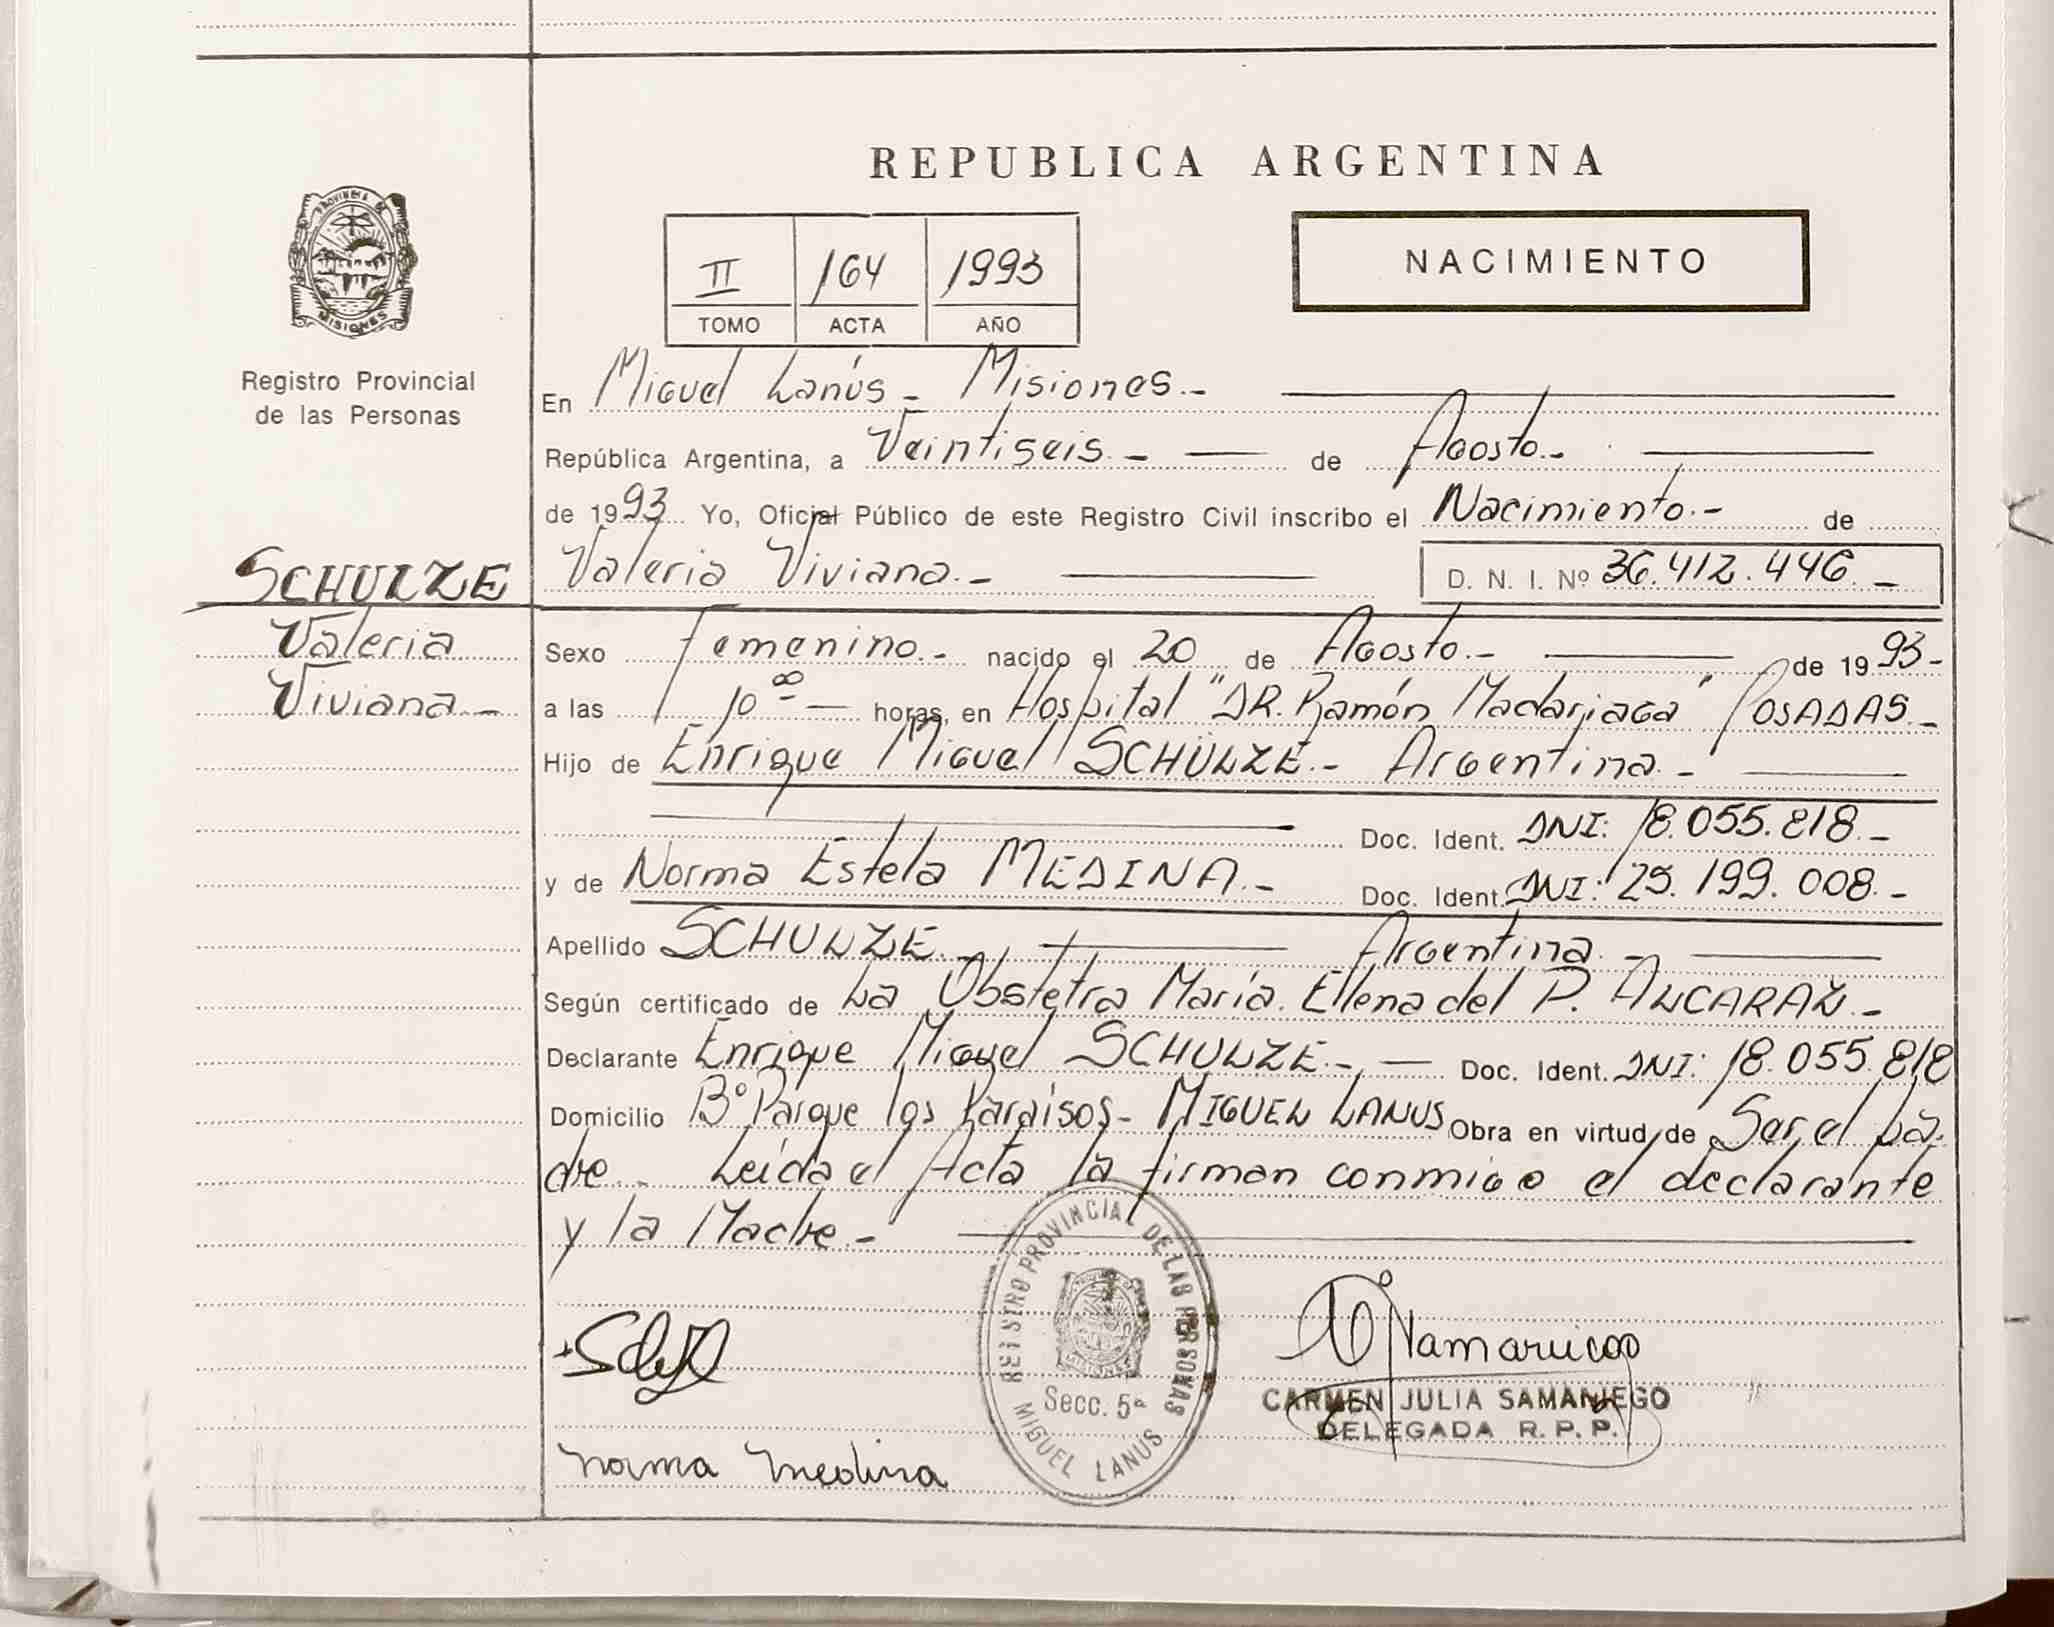 REPUBLICA ARGENTINA
PROVINCIA DE
MISIONES
Registro Provincial
de las Personas
II 164 1993
TOMO ACTA AÑO
NACIMIENTO
En Miguel Lanús - Misiones.-
República Argentina, a Veintiseis.- de Agosto.-
de 1993 Yo, Oficial Público de este Registro Civil inscribo el Nacimiento.- de
Valeria Viviana.- D. N. I. Nº 36.412.446.-
SCHULZE
Valeria
Viviana.-
Sexo Femenino.- nacido el 20 de Agosto.- de 1993.-
a las 10 00 horas, en Hospital "DR. Ramón Madariaga" POSADAS.-
Hijo de Enrique Miguel SCHULZE.- Argentina.-
Doc. Ident. DNI: 18.055.818.-
y de Norma Estela MEDINA.- Doc. Ident. DNI: 25.199.008.-
Apellido SCHULZE.- Argentina.-
Según certificado de La Obstetra María Ellena del P. ALCARAZ.-
Declarante Enrique Miguel SCHULZE.- Doc. Ident. DNI: 18.055.818
Domicilio Bº Parque los Paraísos- MIGUEL LANUS Obra en virtud de Ser el pa-
dre.. Leída el Acta la firman conmigo el declarante
y la Madre.-
REGISTRO PROVINCIAL DE LAS PERSONAS
MISIONES
Secc. 5ª
MIGUEL LANUS
CARMEN JULIA SAMANIEGO
DELEGADA R. P. P.
Norma Medina